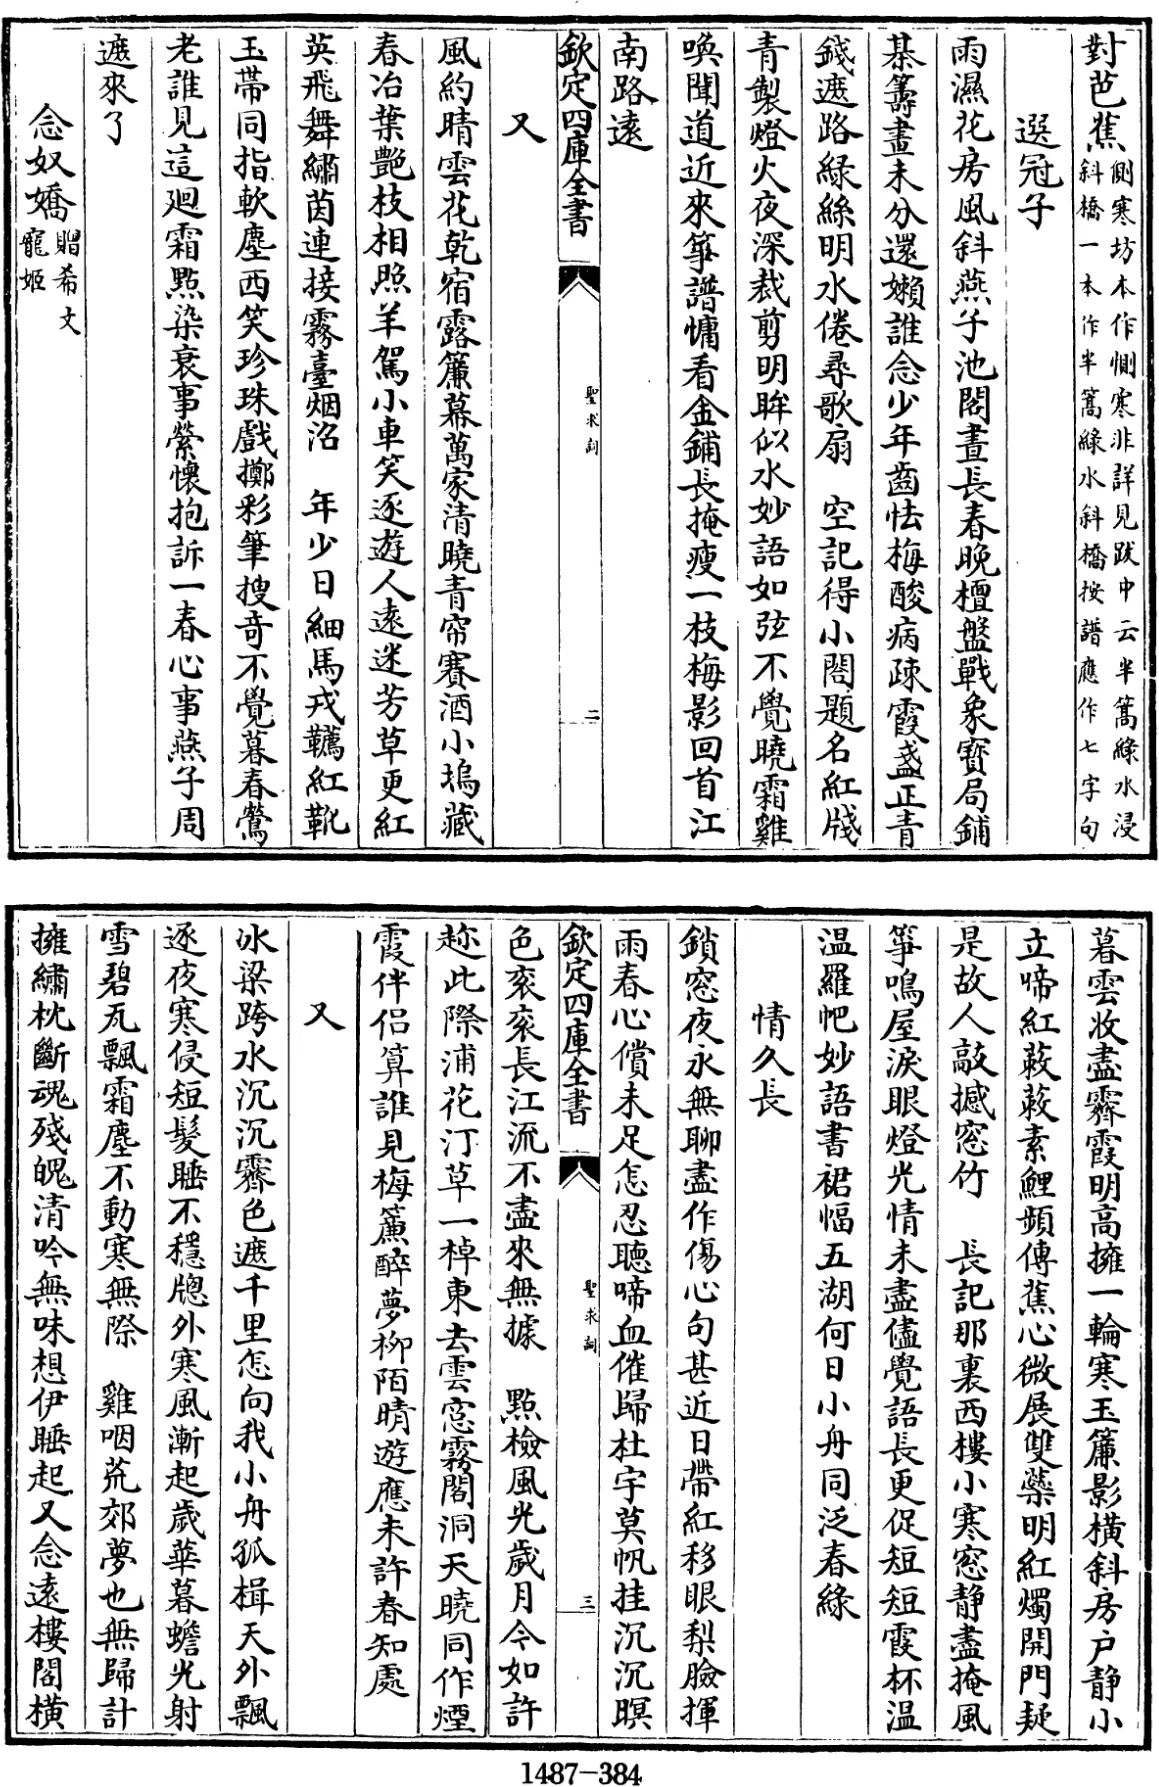 對芭蕉側寒坊本作惻寒非詳見跋中云半篙綠水浸斜橋一本作半篙綠水斜橋按譜應作七字句
選冠子
雨濕花房風斜燕子池閣晝長春晚檀盤戰象寶局鋪
棊籌畫未分還嬾誰念少年齒怯梅酸病疎霞盞正青
錢遮路綠絲明水倦尋歌扇　空記得小閣題名紅牋
青製燈火夜深裁剪明眸似水妙語如弦不覺曉霜雞
喚聞道近來箏譜慵看金鋪長掩瘦一枝梅影回首江
南路遠
欽定四庫全書　聖求詞　二
又
風約晴雲花乾宿露簾幕萬家清曉青帘賽酒小塢藏
春冶葉艷枝相照羊駕小車笑逐遊人遠迷芳草更紅
英飛舞繡茵連接霧臺烟沼　年少日細馬戎韉紅靴
玉帶同指軟塵西笑珍珠戲擲彩筆搜奇不覺暮春鶯
老誰見這廻霜點染衰事縈懷抱訴一春心事燕子周
遮來了
念奴嬌贈希文寵姬
暮雲收盡霽霞明高擁一輪寒玉簾影橫斜房户静小
立啼紅蔌蔌素鯉頻傳蕉心微展雙蘂明紅燭開門疑
是故人敲撼窓竹　長記那裏西樓小寒窓静盡掩風
箏鳴屋淚眼燈光情未盡儘覺語長更促短短霞杯温
温羅帊妙語書裙幅五湖何日小舟同泛春綠
情久長
鎖窓夜永無聊盡作傷心句甚近日帶紅移眼梨臉揮
雨春心償未足怎忍聽啼血催歸杜宇莫帆挂沉沉暝
欽定四庫全書　聖求詞　三
色衮衮長江流不盡來無據　點檢風光歲月今如許
趂此際浦花汀草一棹東去雲窓霧閣洞天曉同作煙
霞伴侣算誰見梅簾醉夢柳陌晴遊應未許春知處
又
冰梁跨水沉沉霽色遮千里怎向我小舟孤楫天外飄
逐夜寒侵短髪睡不穩牕外寒風漸起歲華暮蟾光射
雪碧瓦飄霜塵不動寒無際　雞咽荒郊夢也無歸計
擁繡枕斷魂殘魄清吟無味想伊睡起又念遠樓閣橫
1487-384